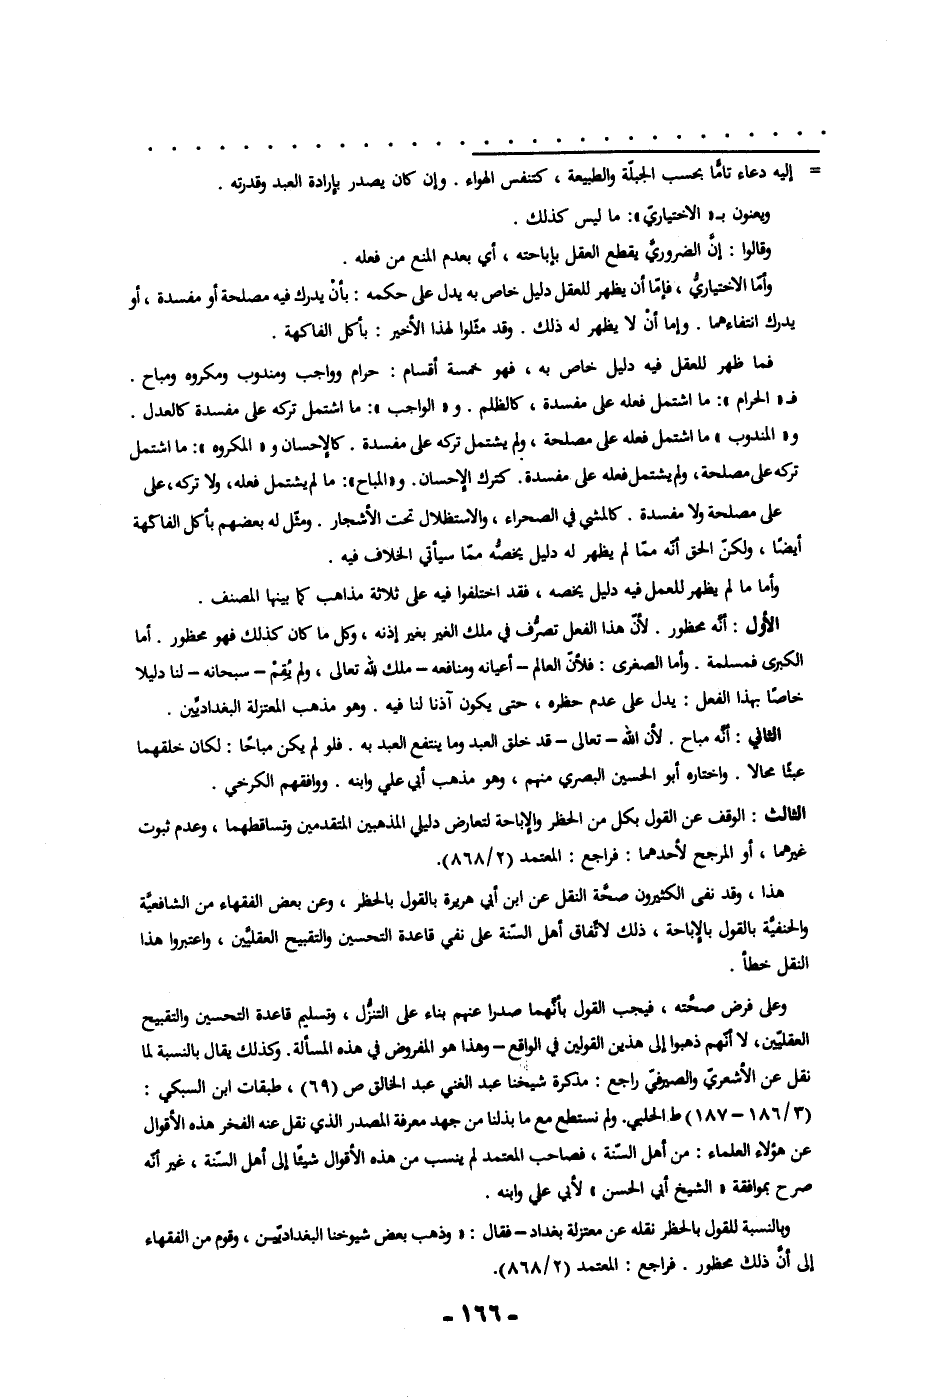 = إليه دعاء تامًّا بحسب الجبلّة والطبيعة ، كتنفس الهواء . وإن كان يصدر بإرادة العبد وقدرته .
ويعنون بـ« الاختياريّ »: ما ليس كذلك .
وقالوا : إنَّ الضروريَّ يقطع العقل بإباحته ، أي بعدم المنع من فعله .
وأمّا الاختياريُّ ، فإمّا أن يظهر للعقل دليل خاص به يدل على حكمه : بأنْ يدرك فيه مصلحة أو مفسدة ، أو
يدرك انتفاءهما . وإما أنْ لا يظهر له ذلك . وقد مثّلوا لهذا الأخير : بأكل الفاكهة .
فما ظهر للعقل فيه دليل خاص به ، فهو خمسة أقسام : حرام وواجب ومندوب ومكروه ومباح .
فـ« الحرام »: ما اشتمل فعله على مفسدة ، كالظلم . و « الواجب »: ما اشتمل تركه على مفسدة كالعدل .
و« المندوب » ما اشتمل فعله على مصلحة ، ولم يشتمل تركه على مفسدة . كالإحسان و « المكروه »: ما اشتمل
تركه على مصلحة، ولم يشتمل فعله على مفسدة. كترك الإحسان. و«المباح»: ما لم يشتمل فعله، ولا تركه، على
على مصلحة ولا مفسدة . كالمشي في الصحراء ، والاستظلال تحت الأشجار . ومثّل له بعضهم بأكل الفاكهة
أيضًا ، ولكنّ الحق أنّه ممّا لم يظهر له دليل يخصُّه ممّا سيأتي الخلاف فيه .
وأما ما لم يظهر للعمل فيه دليل يخصه ، فقد اختلفوا فيه على ثلاثة مذاهب كما بينها المصنف .
الأول : أنّه محظور . لأنّ هذا الفعل تصرُّف في ملك الغير بغير إذنه ، وكل ما كان كذلك فهو محظور . أما
الكبرى فمسلمة . وأما الصغرى : فلأنّ العالم – أعيانه ومنافعه – ملك لله تعالى ، ولم يُقِمْ – سبحانه – لنا دليلا
خاصًا بهذا الفعل : يدل على عدم حظره ، حتى يكون آذنا لنا فيه . وهو مذهب المعتزلة البغداديّين .
الثاني : أنّه مباح . لأن الله – تعالى – قد خلق العبد وما ينتفع العبد به . فلو لم يكن مباحًا : لكان خلقهما
عبثًا محالا . واختاره أبو الحسين البصري منهم ، وهو مذهب أبي علي وابنه . ووافقهم الكرخي .
الثالث : الوقف عن القول بكل من الحظر والإباحة لتعارض دليلي المذهبين المتقدمين وتساقطهما ، وعدم ثبوت
غيرهما ، أو المرجح لأحدهما : فراجع : المعتمد (٨٦٨/٢).
هذا ، وقد نفى الكثيرون صحَّة النقل عن ابن أبي هريرة بالقول بالحظر ، وعن بعض الفقهاء من الشافعيَّة
والحنفيَّة بالقول بالإباحة ، ذلك لاتّفاق أهل السنّة على نفي قاعدة التحسين والتقبيح العقليَّين ، واعتبروا هذا
النقل خطأ .
وعلى فرض صحَّته ، فيجب القول بأنّهما صدرا عنهم بناء على التنزُّل ، وتسليم قاعدة التحسين والتقبيح
العقليّين، لا أنّهم ذهبوا إلى هذين القولين في الواقع – وهذا هو المفروض في هذه المسألة. وكذلك يقال بالنسبة لما
نقل عن الأشعريّ والصيرفيّ راجع : مذكرة شيخنا عبد الغني عبد الخالق ص (٦٩) ، طبقات ابن السبكي :
(١٨٦/٣ – ١٨٧) ط الحلبي. ولم نستطع مع ما بذلنا من جهد معرفة المصدر الذي نقل عنه الفخر هذه الأقوال
عن هؤلاء العلماء : من أهل السنّة ، فصاحب المعتمد لم ينسب من هذه الأقوال شيئًا إلى أهل السنّة ، غير أنّه
صرح بموافقة « الشيخ أبي الحسن » لأبي علي وابنه .
وبالنسبة للقول بالحظر نقله عن معتزلة بغداد – فقال : « وذهب بعض شيوخنا البغداديّين ، وقوم من الفقهاء
إلى أنَّ ذلك محظور . فراجع : المعتمد (٨٦٨/٢).
- ١٦٦ -